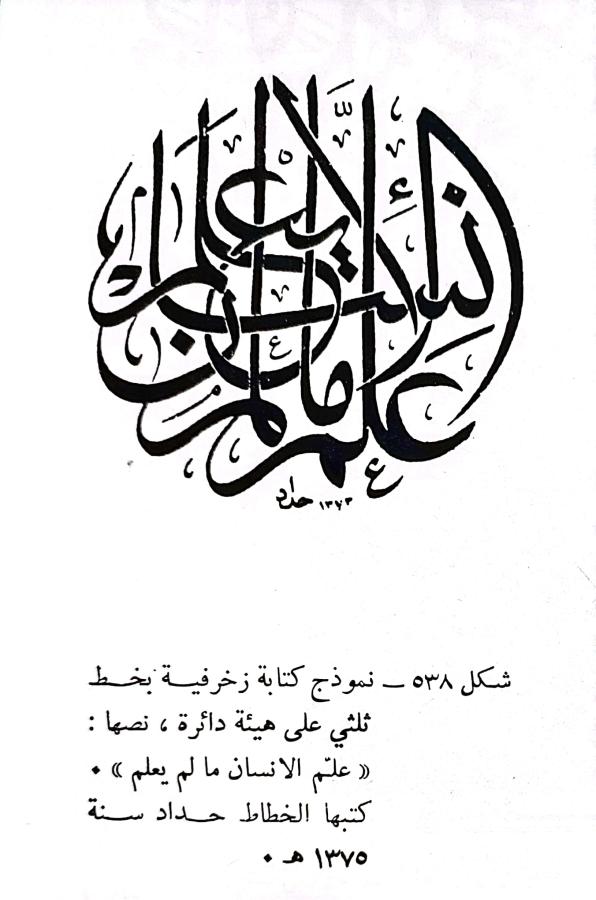 علم الإنسان ما لم يعلم
حداد ١٣٧٣
شكل ٥٣٨ ــ نموذج كتابة زخرفيـة بخـط
ثلثي على هيئة دائرة ، نصها :
« علّم الانسان ما لم يعلم » ٠
كتبها الخطاط حـداد سـنة
١٣٧٥ هـ ٠